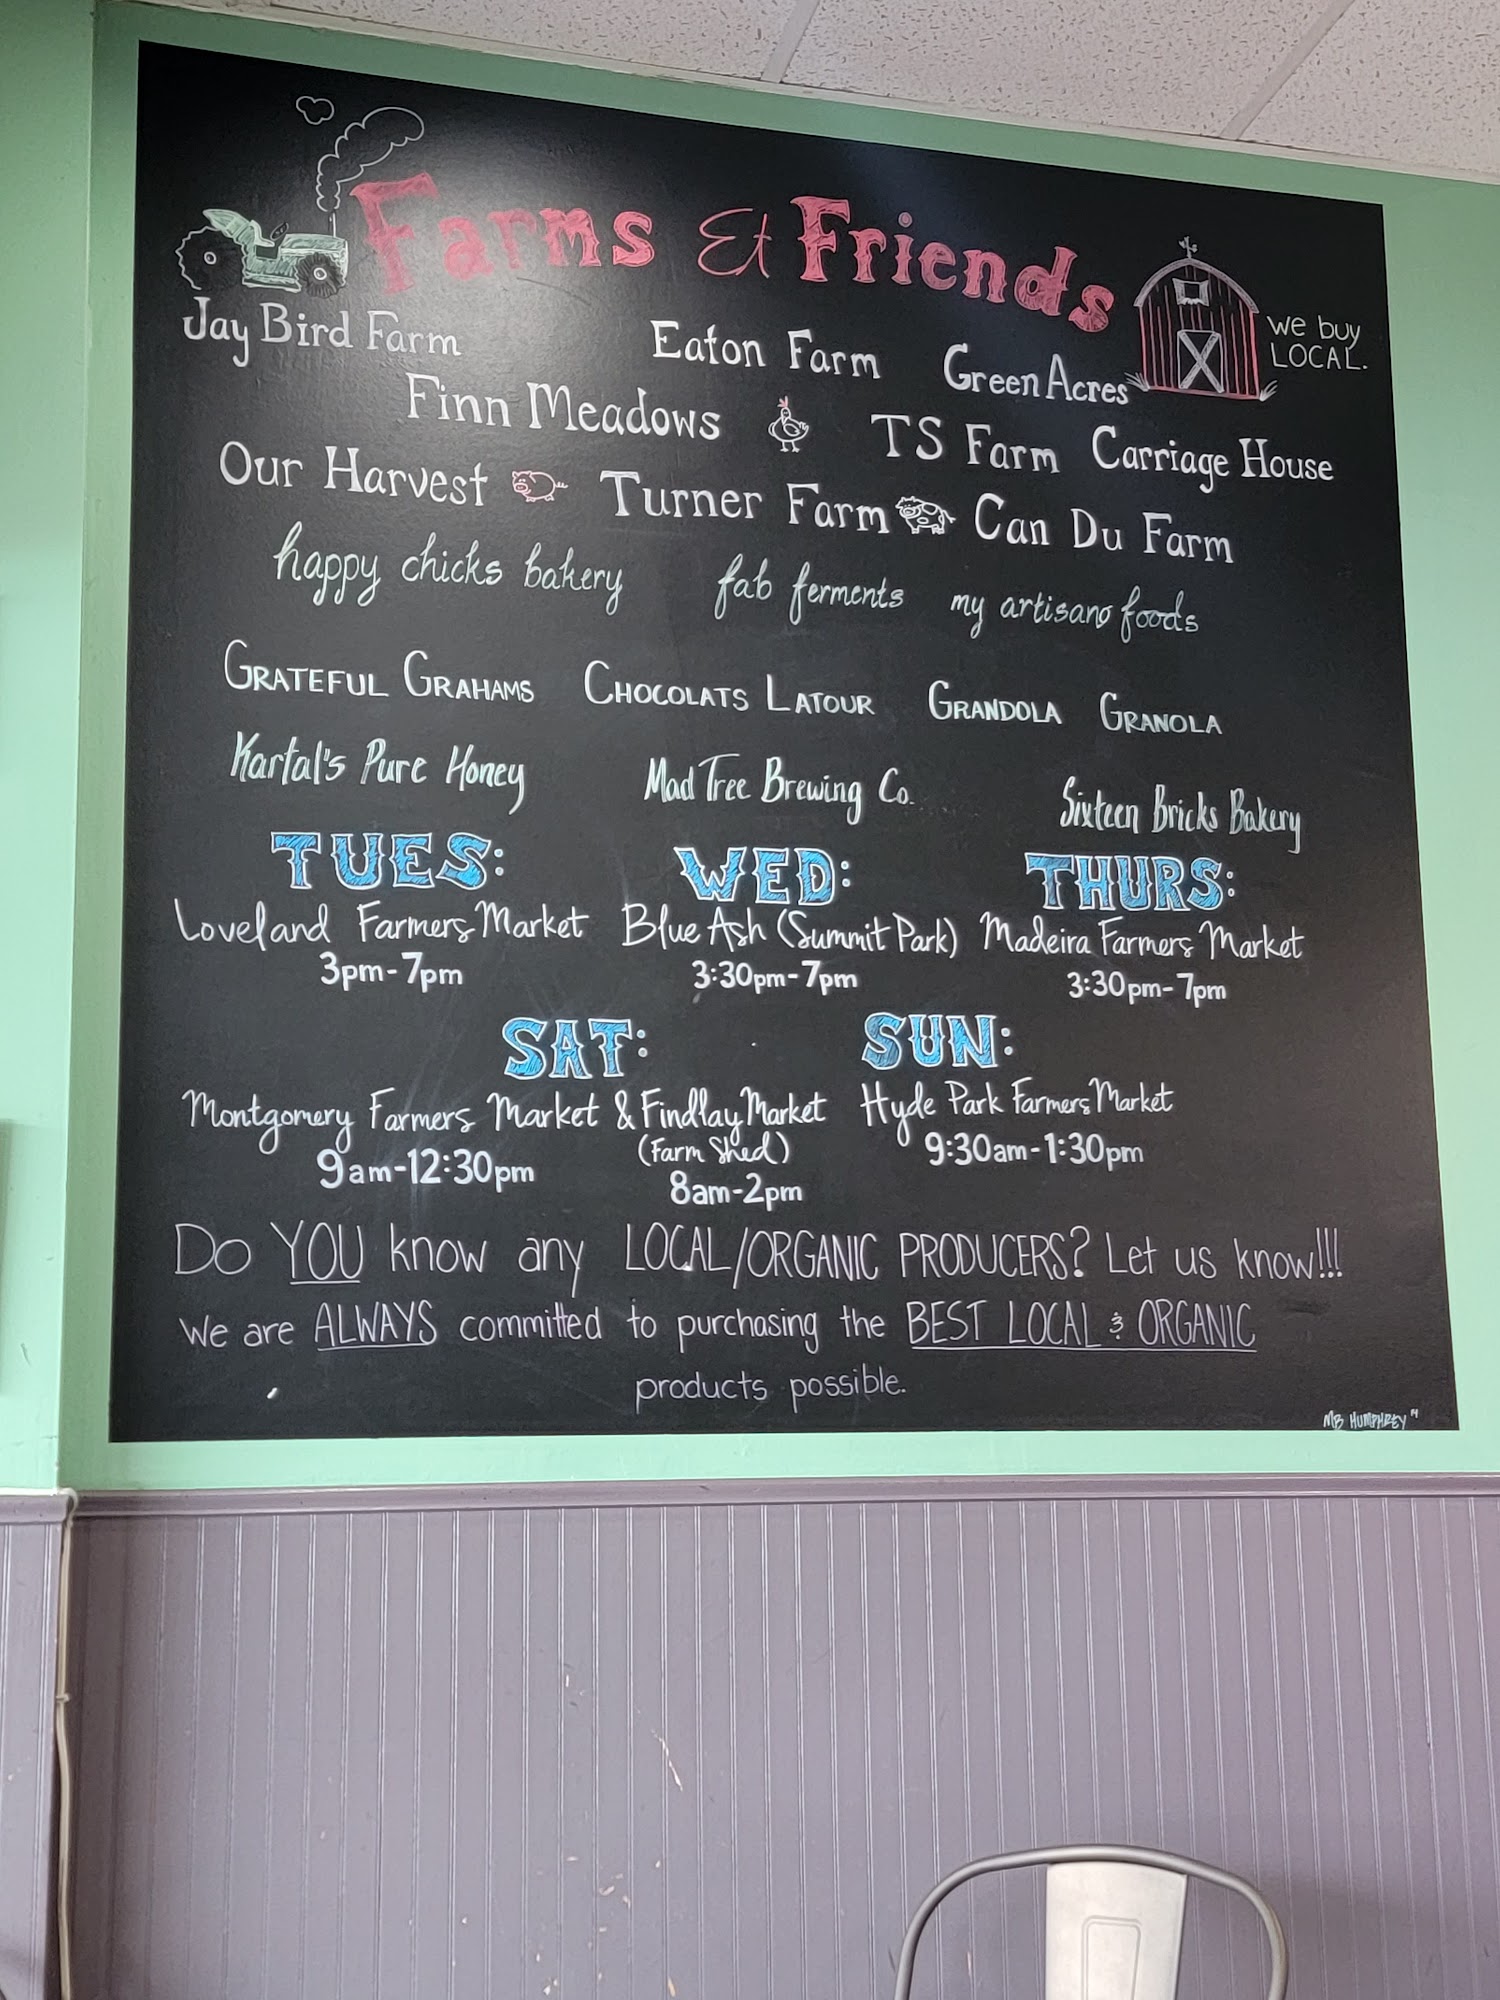 Farms Et Friends
we buy
LOCAL.
Jay Bird Farm Eaton Farm Green Acres
Finn Meadows TS Farm Carriage House
Our Harvest Turner Farm Can Du Farm
happy chicks bakery fab ferments my artisano foods
GRATEFUL GRAHAMS CHOCOLATS LATOUR GRANDOLA GRANOLA
Kartal's Pure Honey Mad Tree Brewing Co. Sixteen Bricks Bakery
TUES: WED: THURS:
Loveland Farmers Market Blue Ash (Summit Park) Madeira Farmers Market
3pm-7pm 3:30pm-7pm 3:30pm-7pm
SAT: SUN:
Montgomery Farmers Market & Findlay Market Hyde Park Farmers Market
(Farm Shed)
9am-12:30pm 8am-2pm 9:30am-1:30pm
Do YOU know any LOCAL/ORGANIC PRODUCERS? Let us know!!!
We are ALWAYS committed to purchasing the BEST LOCAL & ORGANIC
products possible.
MB HUMPHREY '14